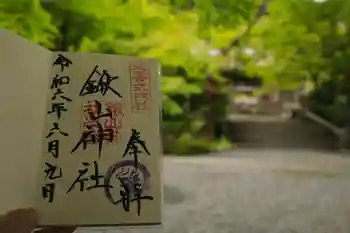 奉拝
鍬山神社
令和六年六月九日